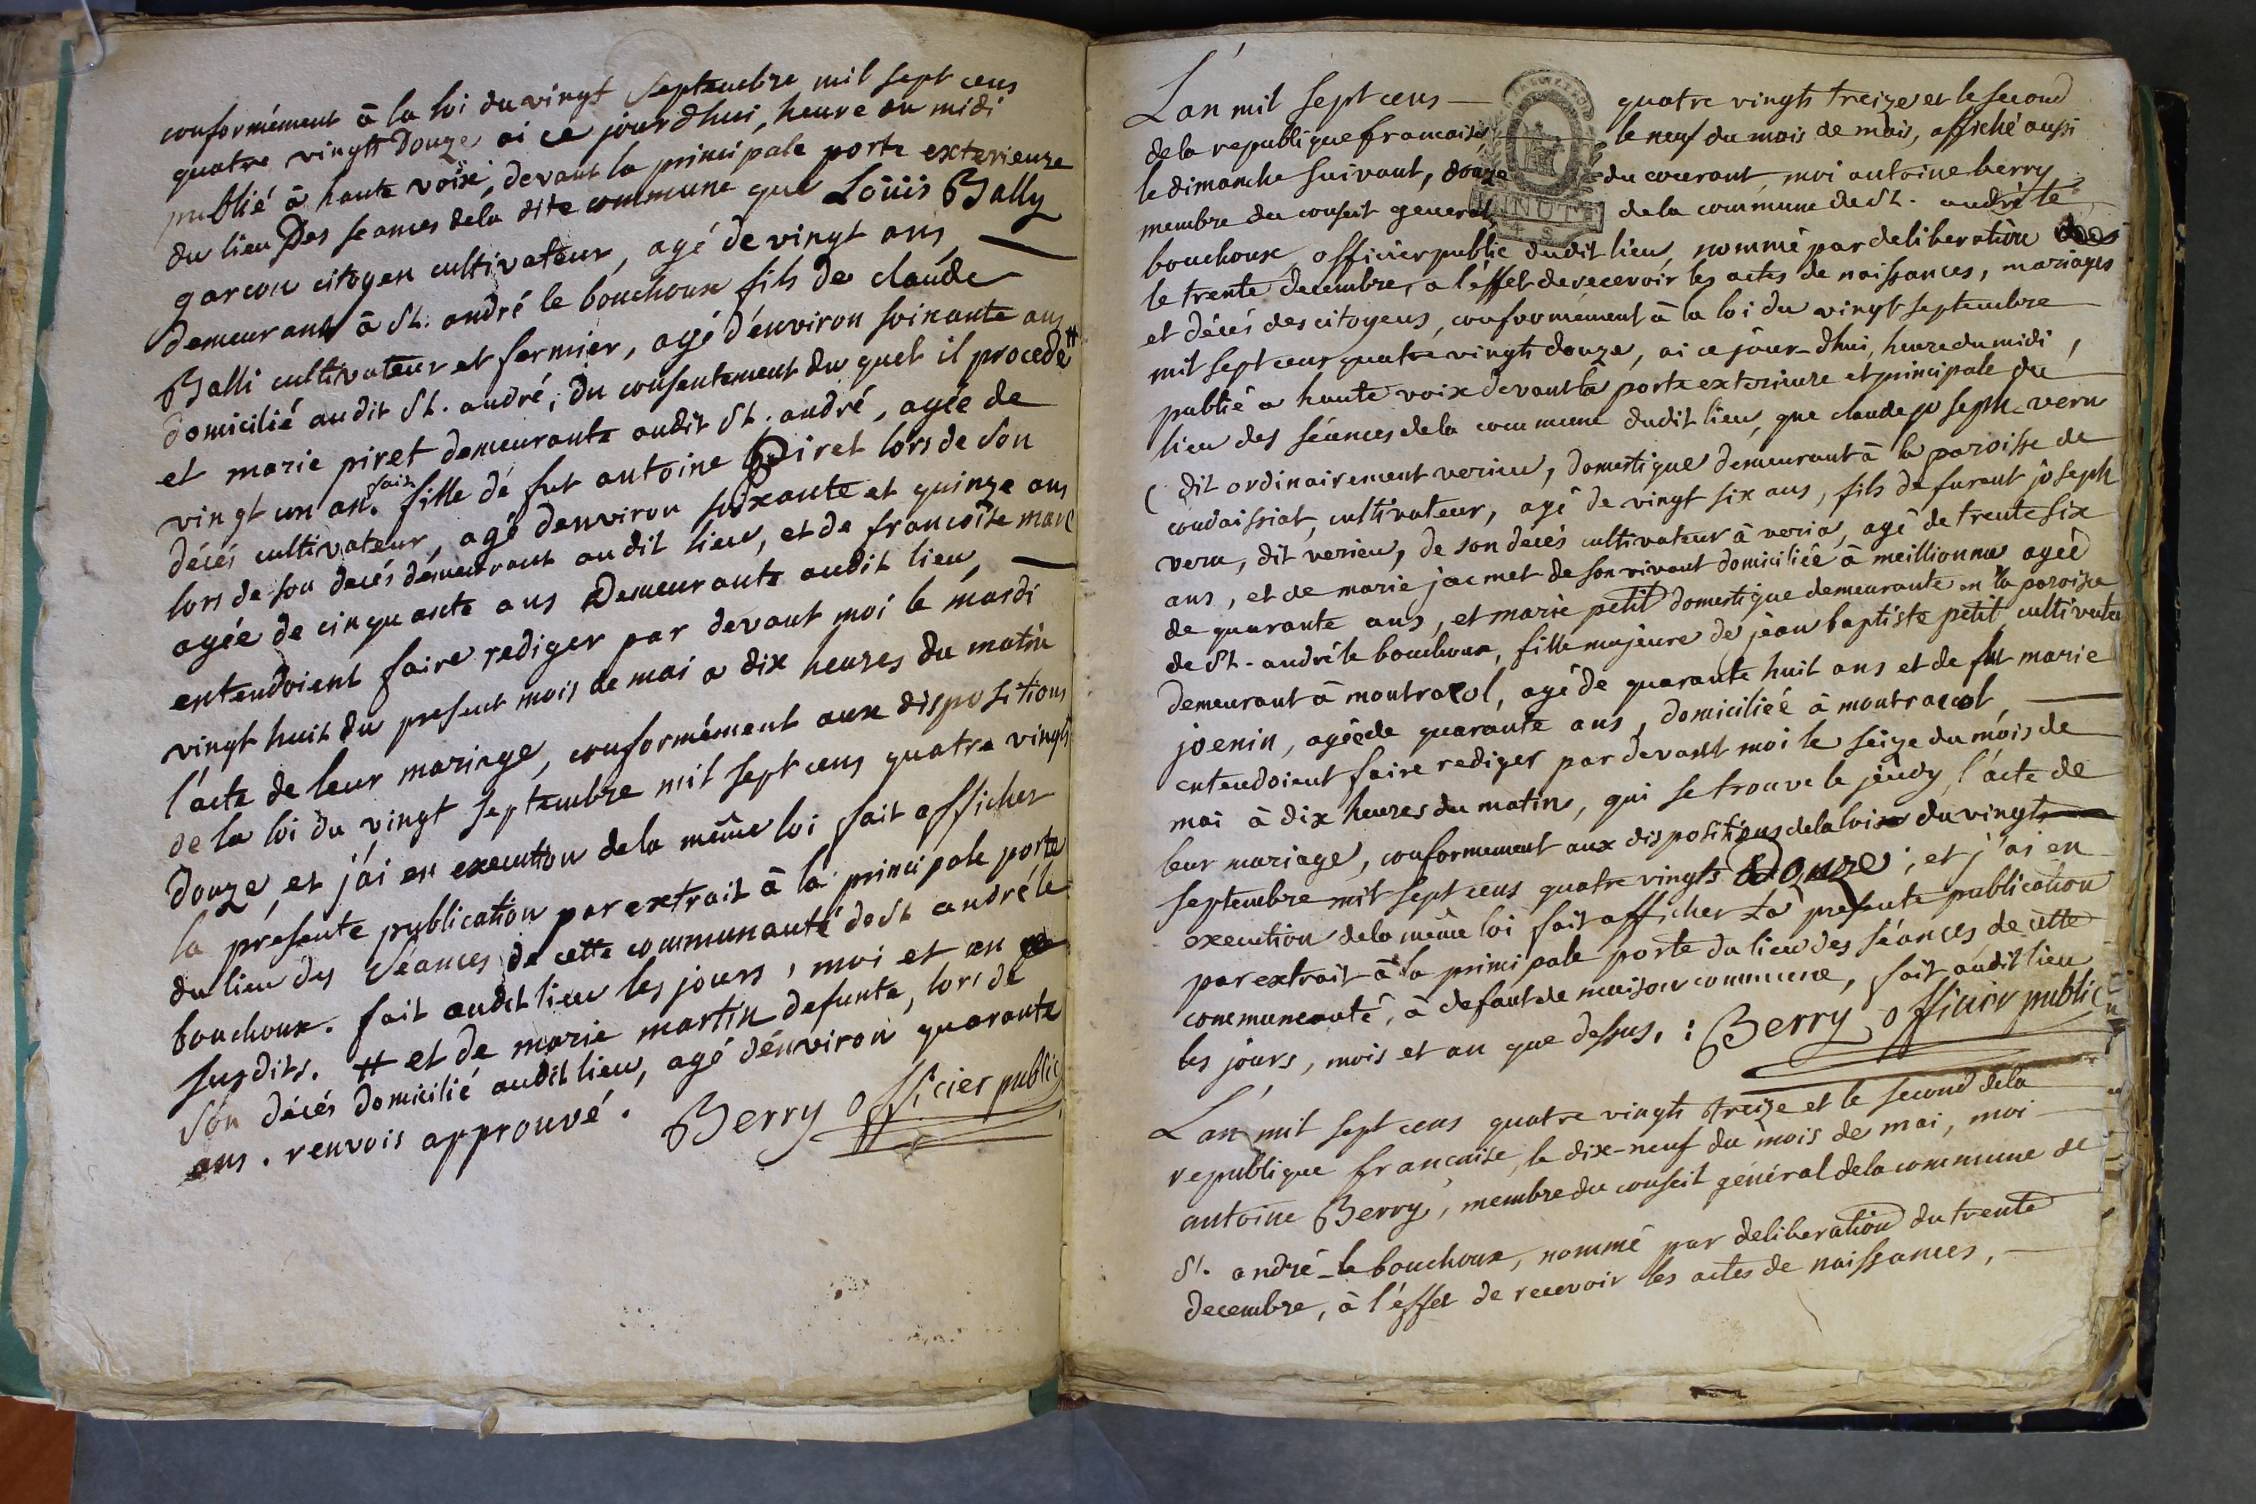 conformément à la loi du vingt septembre mil sept cens
quatre vingts douze ai ce jourdhui, heure du midi
publié à haute voixe, devant la principale porte exterieure
du lieu Des seances dela dite commune que Loüis Bally
garcon citoyen cultivateur, agé de vingt ans
demeurant à St. andré le bouchoux fils de claude
Balli cultivateur et fermier, agé d'environ soixante ans
domicilié audit St. andré, du consentement du quel il procede #
et marie piret demeurante audit St. andré, agée de
vingt un an. fille de fut antoine Piret lors de son
décés cultivateur, agé denviron soixante et quinze ans
lors de son decés demeurant au dit lieu, et de francoise
agée de cinquante ans Demeurante audit lieu,
entendoient faire rediger par devant moi le mardi
vingt huit du present mois de mai a dix heures du matin
l'acte de leur mariage, conformément aux dispositions
de la loi du vingt septembre mil sept cens quatre vingts
douze, et j'ai en execution dela même loi fait afficher
la présente publication par extrait à la principale porte
du lieu des séances de cette communauté de St andré le
bouchoux. fait audit lieu les jours, moi et an
susdits. # et de marie martin defunte, lors de
son décés domicilié audit lieu, agé d'énviron quarante
ans. renvois approuvé. Berry officier public
L'an mil sept cens quatre vingts treize et le second
dela republique francaise, le neuf du mois de mai, affiché aussi
le dimanche suivant, douze du courant, moi antoine berry
membre du conseil general de la commune de St. andré le
bouchoux, officier public dudit lieu, nommé par deliberation
le trente decembre, a l'éffet de recevoir les actes de naissances, mariages
et décés des citoyens, conformément à la loi du vingt septembre
mil sept cens quatre vingts douze, ai ce jour-dhui, heure du midi,
publié a haute voix devant la porte exterieure et principale du
lieu des séances dela commune dudit lieu, que claude joseph vern
dit ordinairement verieu, domestique demeurant à la paroisse de
condaissiat, cultivateur, agé de vingt six ans, fils de furent joseph
vern, dit verieu, de son decés cultivateur à veria, agé de trente six
ans, et de marie jacmet de son vivant domiciliée à meillionna agée
de quarante ans, et marie petit domestique demeurante en la paroisse
de St-andré le bouchoux, fille majeure de jean baptiste petit cultivateu
demeurant à montracol, agé de quarante huit ans et de fut marie
joenin, agée de quarante ans, domiciliée à montracol,
entendoient faire rediger par devant moi le seize du mois de
mai à dix heures du matin, qui se trouve le jeudy, l'acte de
leur mariage, conformement aux dispositions dela loi du vingt
septembre mil sept cens quatre vingts Douze; et j'ai en
execution dela même loi fait afficher La presente publication
par extrait à la principale porte du lieu des séances de cette
communeauté, à defaut de maison commune, fait audit lieu
les jours, mois et an que dessus. : Berry officier public
L'an mil sept cens quatre vingts treize et le second dela
republique française, le dix-neuf du mois de mai, moi
antoine Berry, membre du conseil général dela commune de
St. andré-le bouchoux, nommé par deliberation du trente
decembre, à l'éffet de recevoir les actes de naissances,